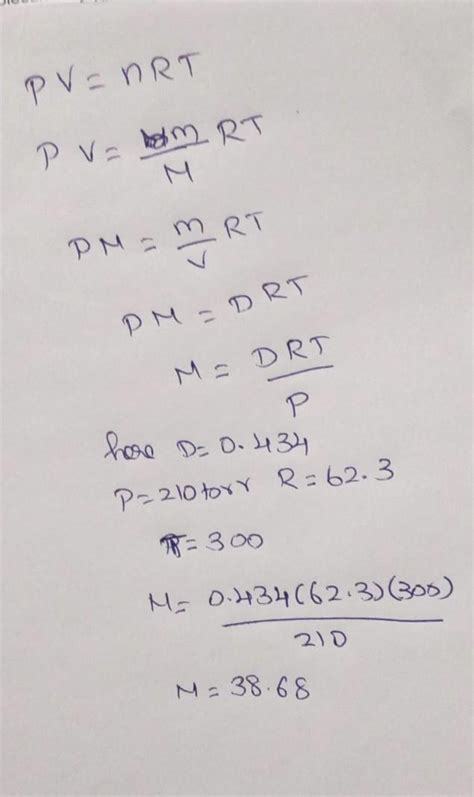 PV = nRT
PV = m/M RT
PM = m/V RT
PM = DRT
M = DRT/P
here D = 0.434
P = 210 torr R = 62.3
T = 300
M = 0.434(62.3)(300)/210
M = 38.68